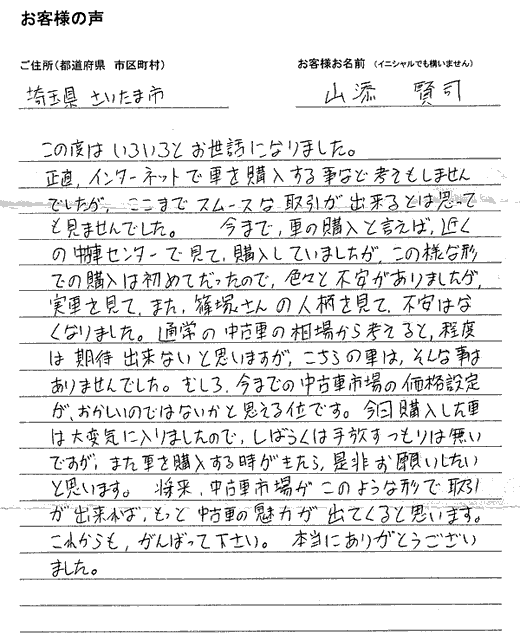 お客様の声
ご住所(都道府県 市区町村)
お客様お名前 (イニシャルでも構いません)
埼玉県 さいたま市
山添 賢司
この度は いろいろと お世話になりました。
正直,インターネットで車を購入する事など考えもしません
でしたが,ここまでスムースな取引が出来るとは思って
も見ませんでした。 今まで,車の購入と言えば,近く
の中車センターで見て,購入していましたが,この様な形
での購入は初めてだったので,色々と不安がありましたが,
実車を見て,また,篠塚さんの人柄を見て,不安はな
くなりました。通常の中古車の相場から考えると,程度
は期待出来ないと思いますが,こちらの車は,そんな事は
ありませんでした。むしろ,今までの中古車市場の価格設定
が,おかしいのではないかと思える位です。今回購入した車
は大変気に入りましたので,しばらくは手放すつもりは無い
ですが,また車を購入する時がきたら,是非お願いしたい
と思います。 将来,中古車市場がこのような形で取引
が出来れば,もっと中古車の魅力が出てくると思います。
これからも,がんばって下さい。 本当にありがとうござい
ました。